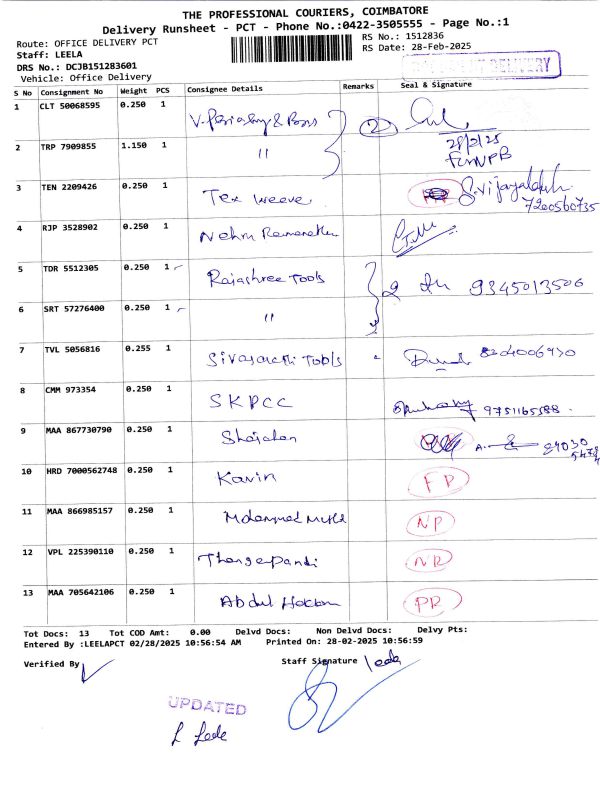 THE PROFESSIONAL COURIERS, COIMBATORE
Delivery Runsheet - PCT - Phone No.:0422-3505555 - Page No.:1
Route: OFFICE DELIVERY PCT
RS No.: 1512836
Staff: LEELA
RS Date: 28-Feb-2025
DRS No.: DCJB151283601
Vehicle: Office Delivery
DELIVERY
S No Consignment No Weight PCS Consignee Details Remarks Seal & Signature
1 CLT 50068595 0.250 1 & 2
28/2/25
2 TRP 7909855 1.150 1 "
3 TEN 2209426 0.250 1 Tex weave S.Vijayalakshmi
7200560735
4 RJP 3528902 0.250 1 Nehru
5 TDR 5512305 0.250 1 Rajashree Tools 2 9345013506
6 SRT 57276400 0.250 1 "
7 TVL 5056816 0.255 1 Tools
8 CMM 973354 0.250 1 SKPCC 9751165588
9 MAA 867730790 0.250 1
10 HRD 7000562748 0.250 1 Kavin
11 MAA 866985157 0.250 1 Mohammed NP
12 VPL 225390110 0.250 1 Thangapandi
13 MAA 705642106 0.250 1 Abdul
Tot Docs: 13 Tot COD Amt: 0.00 Delvd Docs: Non Delvd Docs: Delvy Pts:
Entered By :LEELAPCT 02/28/2025 10:56:54 AM Printed On: 28-02-2025 10:56:59
Verified By Staff Signature leela
UPDATED